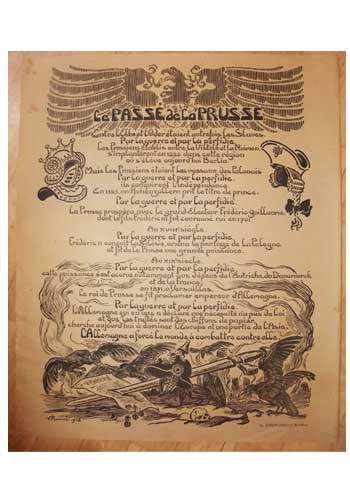 Le PASSÉ de la PRUSSE
Entre l'Elbe et l'Oder étaient autrefois les Slaves.
Par la guerre et par la perfidie,
Les Prussiens établis entre la Vistule et le Niémen
s'implantèrent en 1220 dans cette région
où s'élève aujourd'hui Berlin.
Mais les Prussiens étaient les vassaux des Polonais
Par la guerre et par la perfidie,
ils conquirent l'indépendance.
En un Hohenzollern prit le titre de prince.
Par la guerre et par la perfidie,
La Prusse prospéra avec le grand-Electeur Frédéric Guillaume
dont le fils Frédéric III fut couronné roi en 1701
Au XVIIIe siècle,
Par la guerre et par la perfidie,
Frédéric II conquit la Silésie, ordonna le partage de la Pologne
et fit de la Prusse une grande puissance.
Au XIXe siècle,
Par la guerre et par la perfidie,
cette puissance s'est accrue notamment aux dépens de l'Autriche, du Danemarck
et de la France;
en 1871 à Versailles,
le roi de Prusse se fit proclamer empereur d'Allemagne.
Par la guerre et par la perfidie,
l'Allemagne qui en 1914 a déclaré que nécessité n'a pas de loi
et que les traités sont des chiffons de papier,
cherche aujourd'hui à dominer l'Europe et une partie de l'Asie.
L'Allemagne a forcé le monde à combattre contre elle!